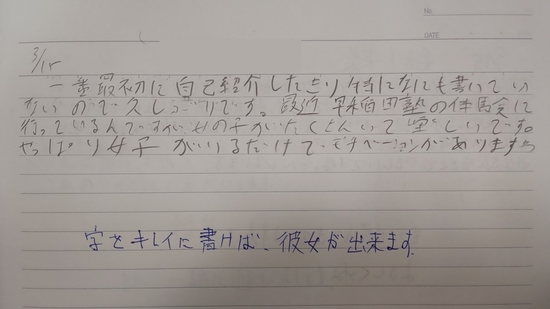 No.
DATE
3/15
一番最初に自己紹介したきり特になにも書いてい
ないので久しぶりです。最近早稲田塾の体験会に
行っているんですが女の子がたくさんいて楽しいです。
やっぱり女子がいるだけでモチベーションがあります
字をキレイに書けば、彼女が出来ます。